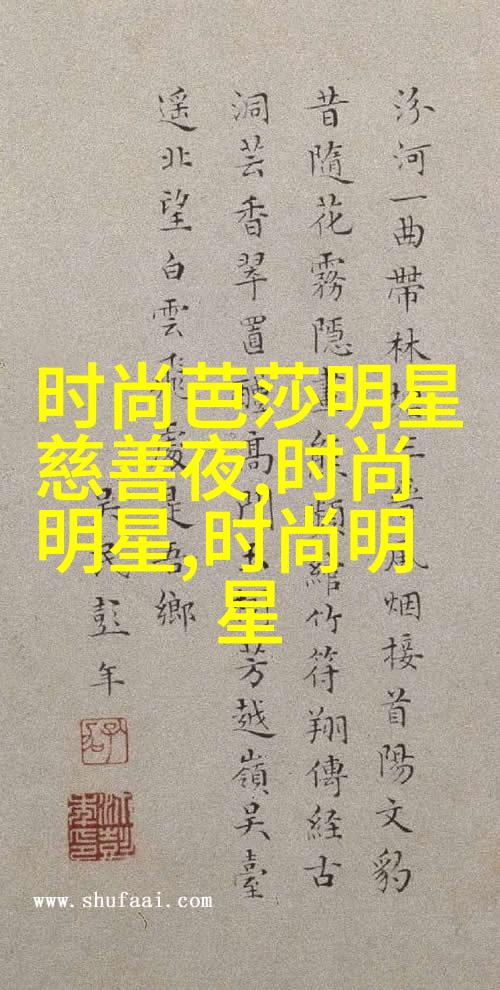 汾河一曲帶林風烟接首陽文豹
昔隨花霧隱畫熊頻綰竹符翔傳經古
洞芸香翠置醴高門芳越嶺吳臺
遥北望白雲飛處是吾鄉
吳民彭年
时尚芭莎明星
慈善夜,时尚
明星,时尚明
星
www.shufaai.com